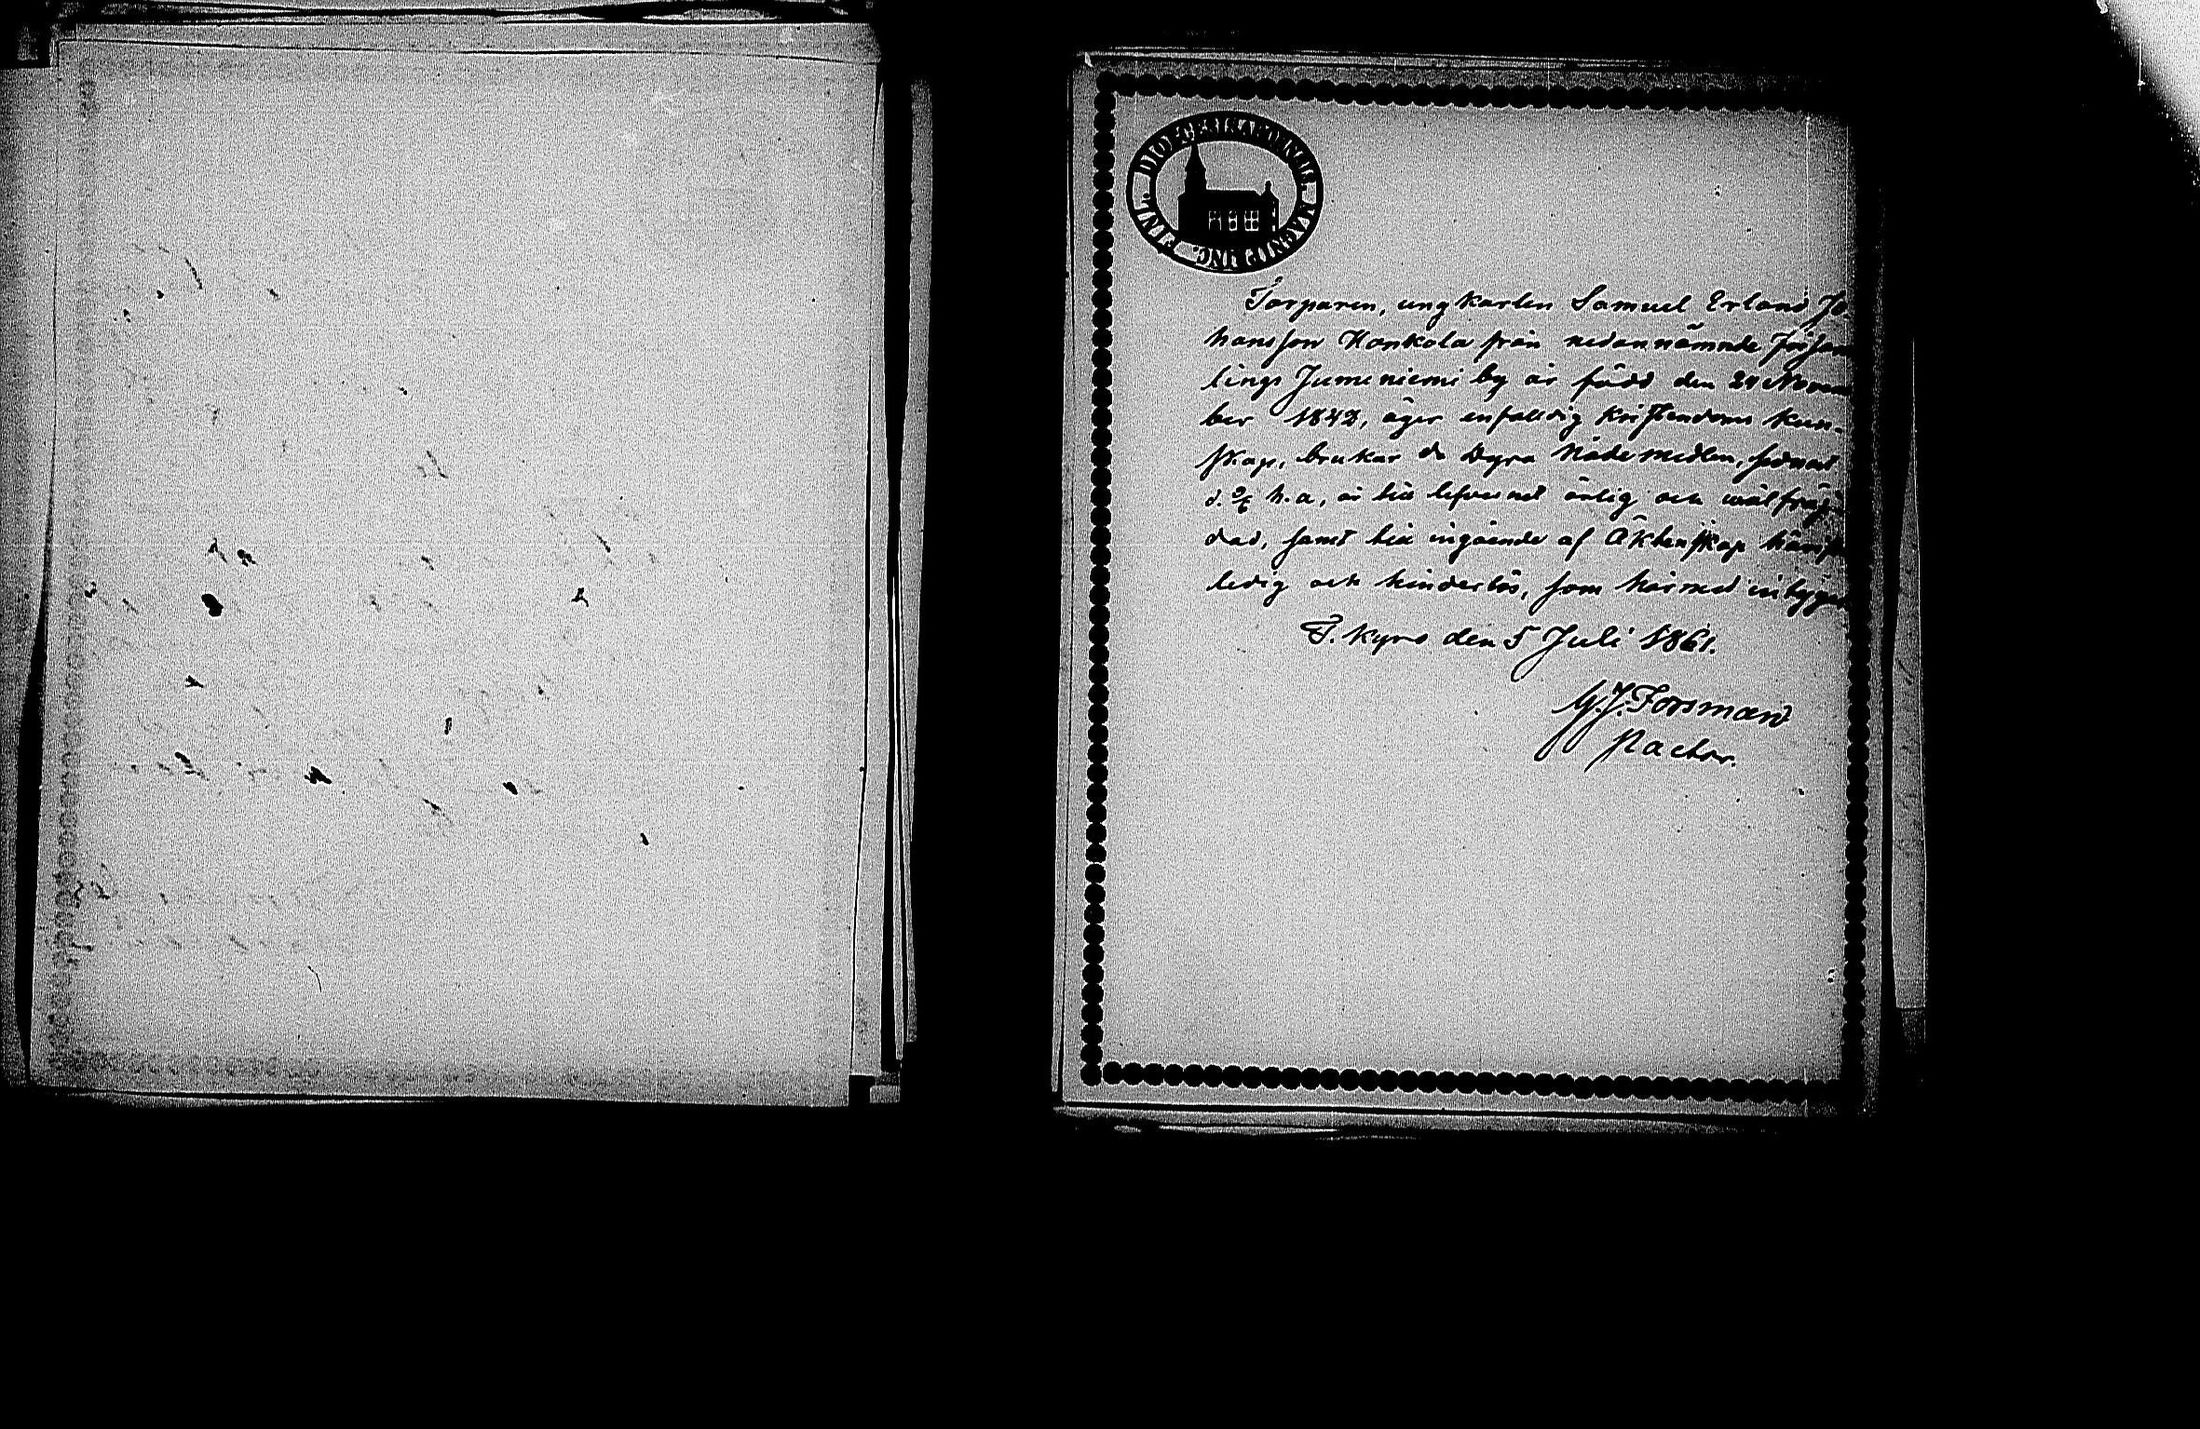 DIOECESIS ABOENSIS. MAGNIP. DUC. FINL.
Torparen, ungkarlen Samuel Erland Jo
hansson Konkola från nedannämnde försam
lings Jumeniemi by är född den 24 Novem
ber 1842, äger enfaldig kristendoms kun-
skap, brukar de Dyra Nådemedlen, sednast
h. a., är till lefvernet ärlig och wälfräj-
dad, samt till ingående af Äktenskap
ledig och hinderlös, som härmed intygas
T. Kyro den 5 Juli 1861.
G. J. Forsman
Pastor.